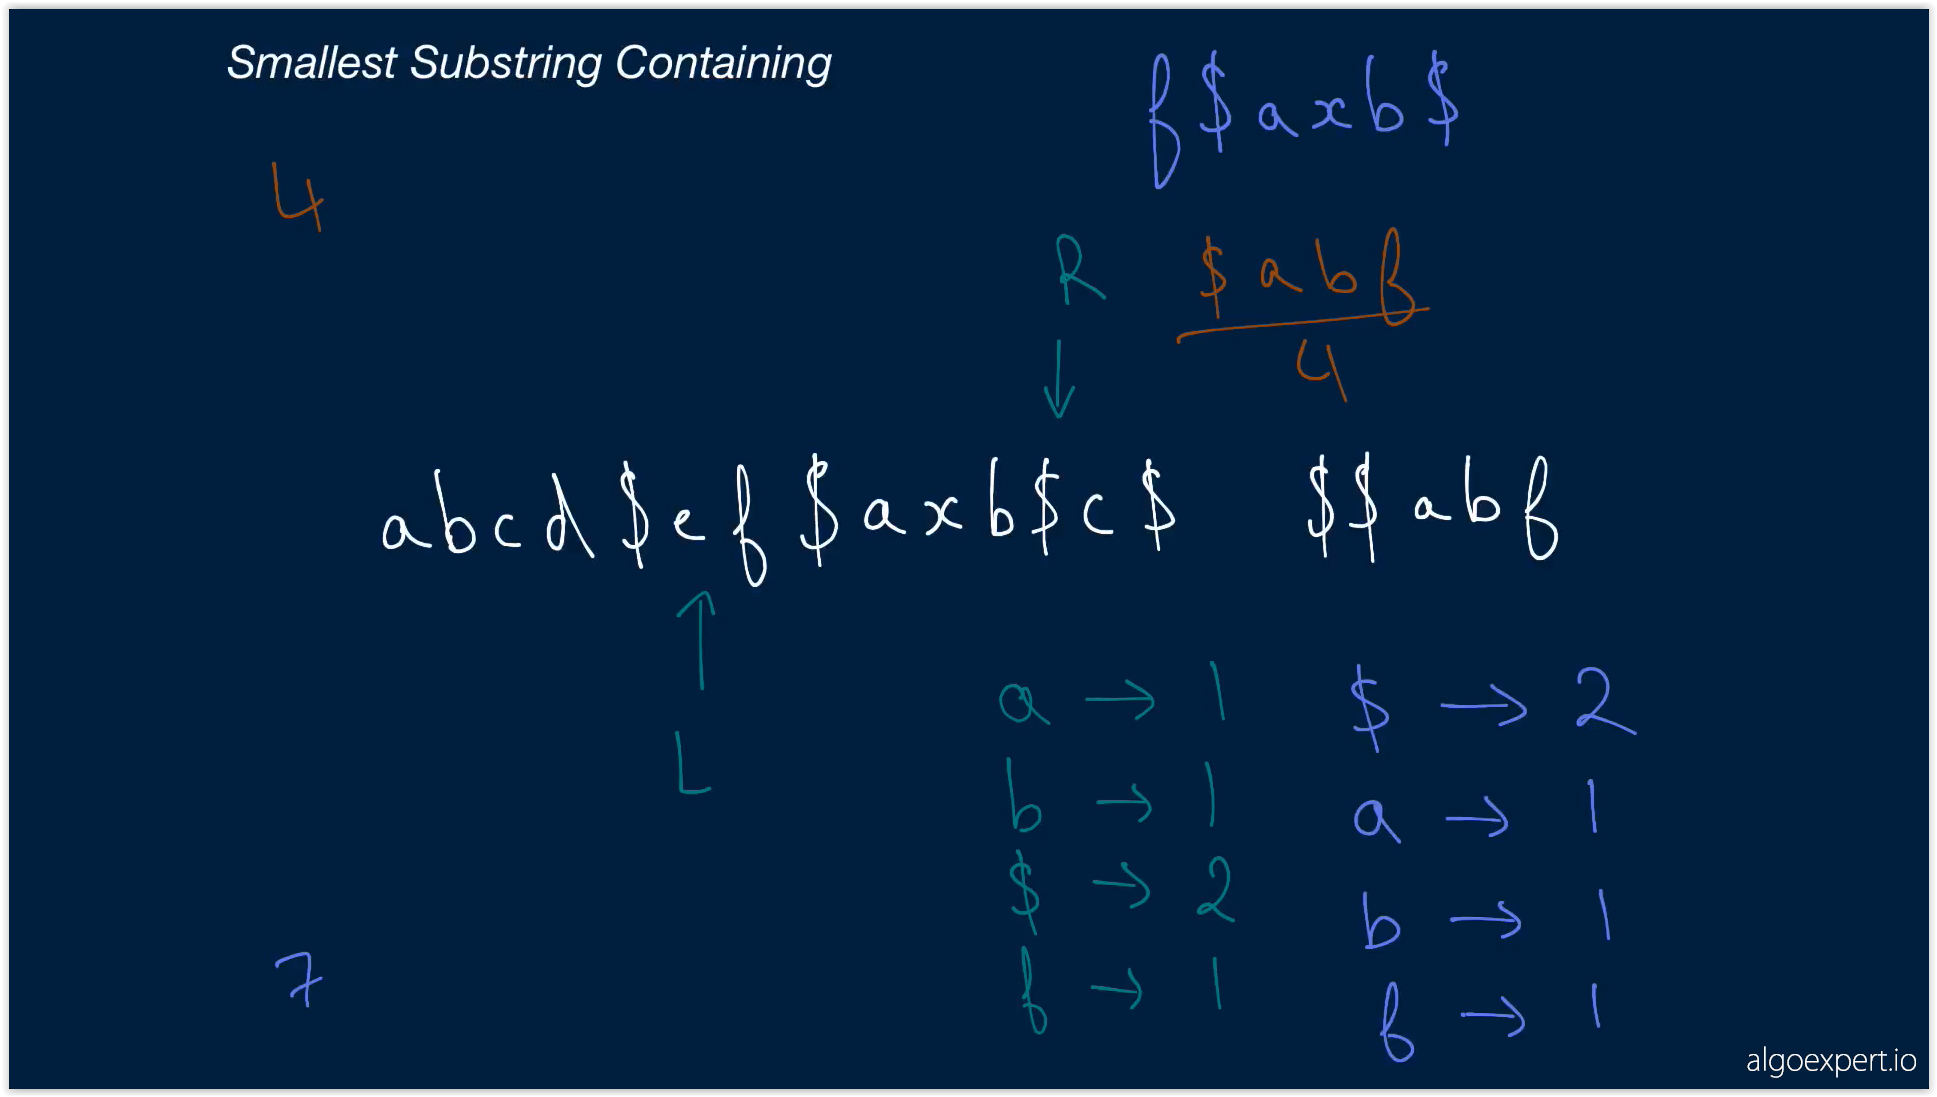 Smallest Substring Containing
f$axb$
4
R
$abf
4
abcd$ef$axb$c$ $$abf
L
a → 1 $ → 2
b → 1 a → 1
$ → 2 b → 1
f → 1 f → 1
7
algoexpert.io